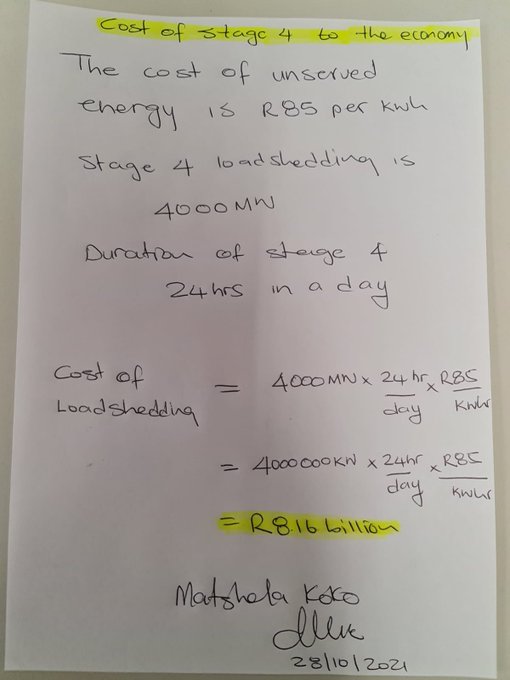 Cost of stage 4 to the economy
The cost of unserved
energy is R85 per kwh
Stage 4 loadshedding is
4000MW
Duration of stage 4
24hrs in a day
Cost of Loadshedding = 4000MW x 24hr/day x R85/kwhr
= 4000000KW x 24hr/day x R85/kwhr
= R8.16 billion
Matshela Koko
28/10/2021